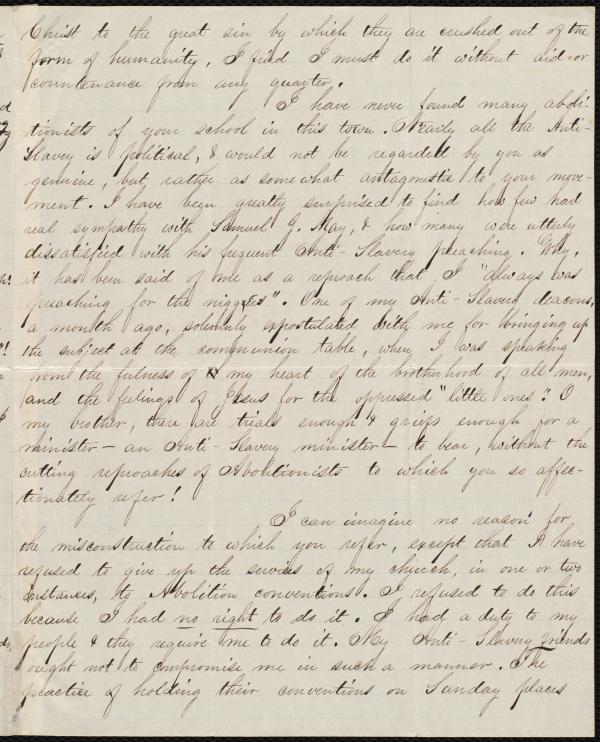 Christ to the great sin by which they are crushed out of the
form of humanity, I find I must do it without aid or
countenance from any quarter.
I have never found many aboli-
tionists of your school in this town. Nearly all the Anti-
Slavery is political, & would not be regarded by you as
genuine, but rather as somewhat antagonistic to your move-
ment. I have been greatly surprised to find how few had
real sympathy with Samuel J. May, & how many were utterly
dissatisfied with his frequent Anti-Slavery preaching. Why,
it has been said of me as a reproach that I "always was
preaching for the niggers". One of my Anti-Slavery deacons,
a month ago, solemnly expostulated with me for bringing up
the subject at the communion table, when I was speaking
from the fulness of my heart of the brotherhood of all men,
and the feelings of Jesus for the oppressed "little ones". O
my brother, there are trials enough & griefs enough for a
minister - an Anti-Slavery minister - to bear, without the
cutting reproaches of Abolitionists to which you so affec-
tionately refer!
I can imagine no reason for
the misconstruction to which you refer, except that I have
refused to give up the services of my church, in one or two
instances, to Abolition conventions. I refused to do this
because I had no right to do it. I had a duty to my
people & they require me to do it. My Anti-Slavery friends
ought not to compromise me in such a manner. The
practice of holding their conventions on Sunday places